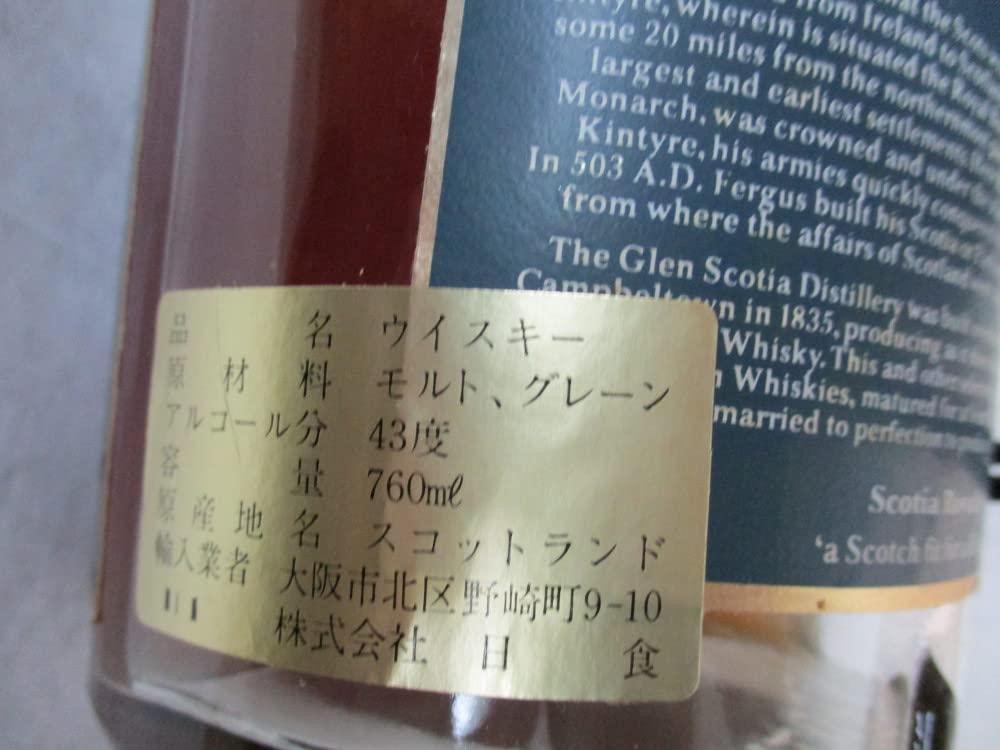 at the Sco
from Ireland to
tyre, wherein is situated the Royal
some 20 miles from the northernmost
largest and earliest settlements
Monarch, was crowned and under the
Kintyre, his armies quickly
In 503 A.D. Fergus built his Scotia
from where the affairs of Scotland
The Glen Scotia Distillery was
Campbeltown in 1835, producing
Whisky. This and other
Whiskies, matured for
married to perfection
Scotia
‘a Scotch fit for
品名 ウイスキー
原材料 モルト、グレーン
アルコール分 43度
容量 760mℓ
原産地名 スコットランド
輸入業者 大阪市北区野崎町9-10
株式会社 日食